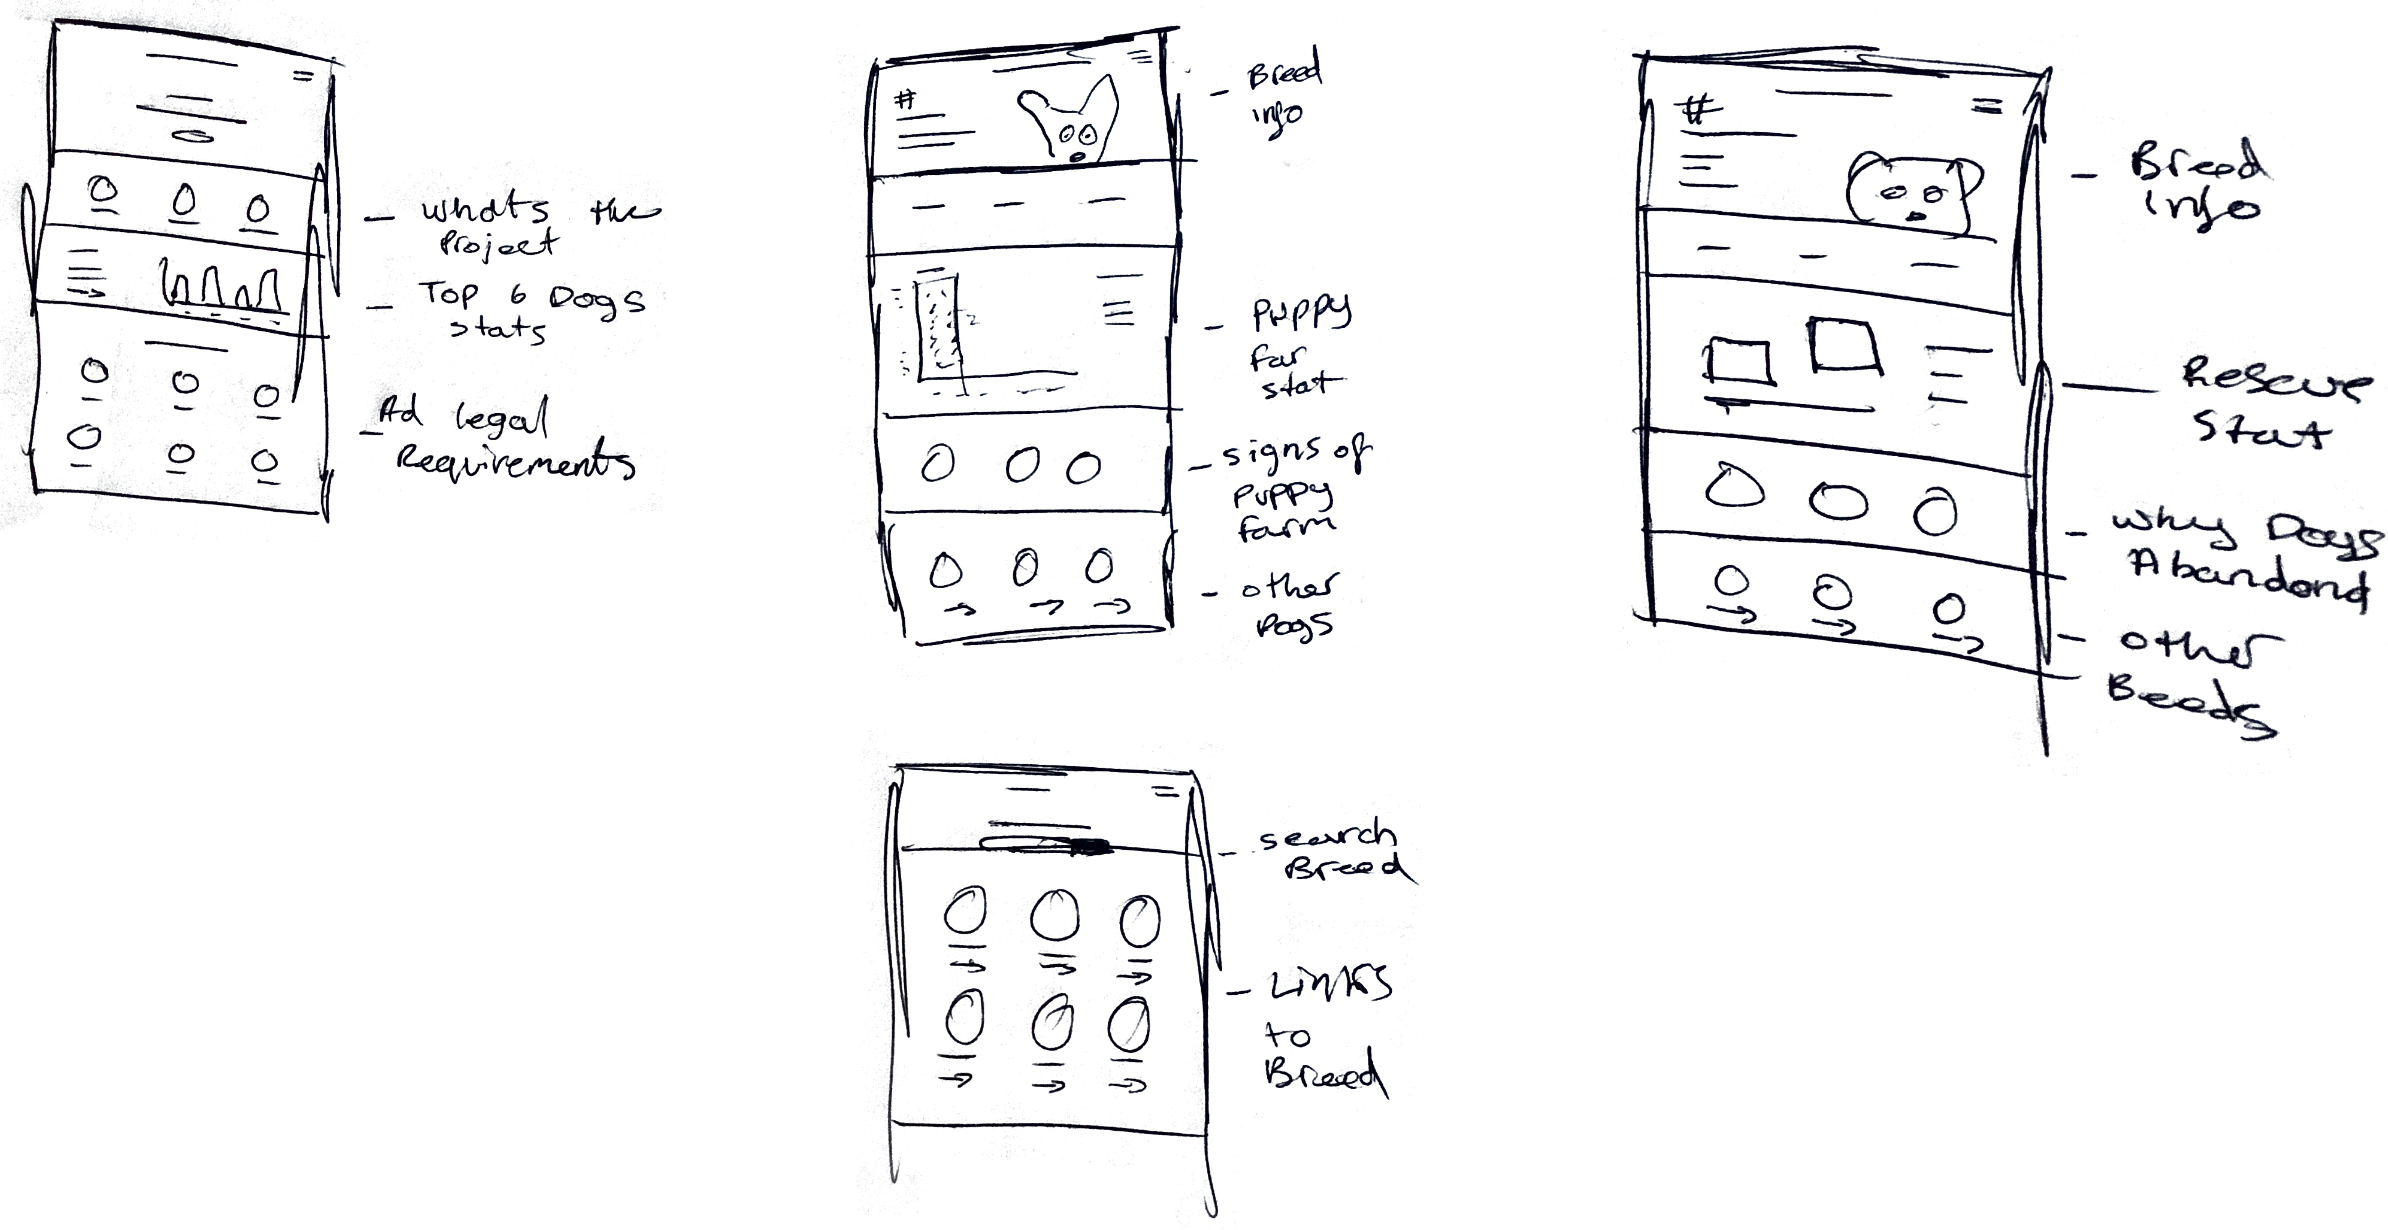 - whats the
Project
- Top 6 Dogs
stats
- Ad legal
Requirements
#
- Breed
info
- Puppy
far
stat
- signs of
puppy
farm
- other
Dogs
#
- Breed
info
- Rescue
Stat
- why Dogs
Abandond
- other
Beeds
- search
Breed
- Links
to
Breed